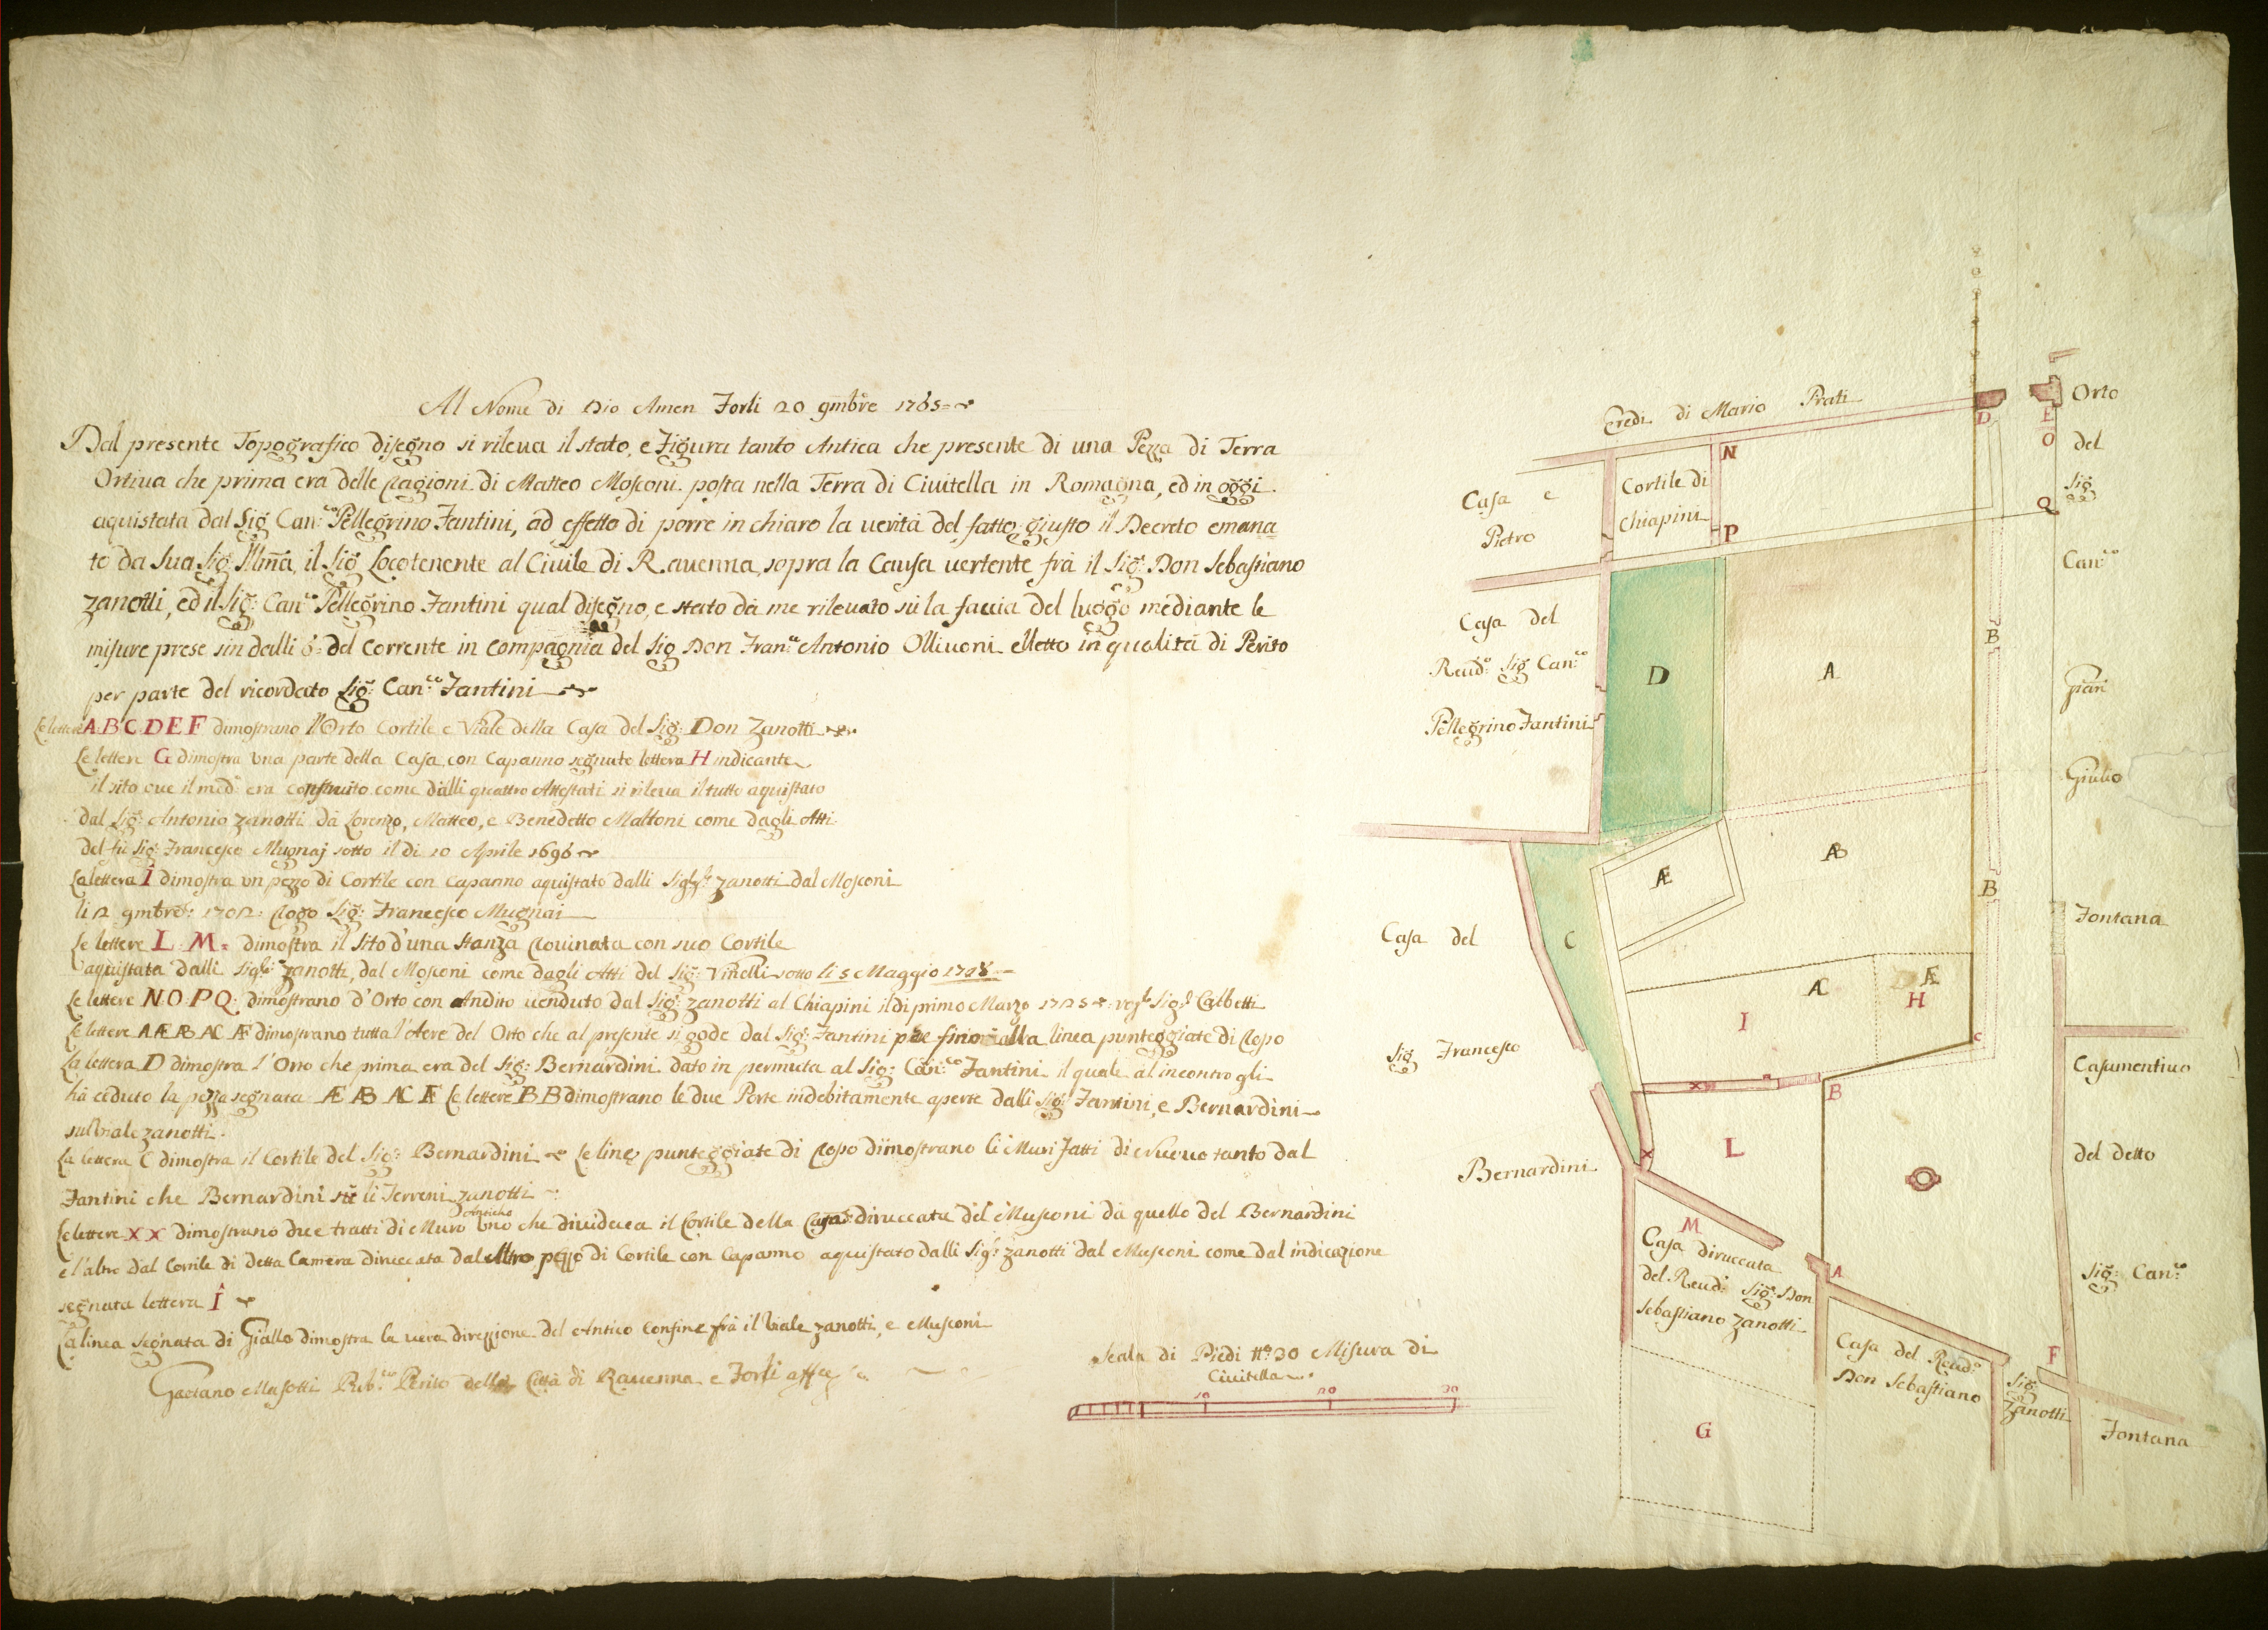 Al Nome di Dio Amen Forlì 20 9mbre 1765
Dal presente Topografico disegno si rileva il stato, e Figura tanto Antica che presente di una Pezza di Terra
Ortiva che prima era delle Ragioni di Matteo Mosconi posta nella Terra di Civitella in Romagna, ed in oggi
aquistata dal Sig. Can.co Pellegrino Fantini, ad effetto di porre in chiaro la verità del fatto giusto il Decreto emana
to da Sua Sig. Illma, il Sig. Locotenente al Civile di Ravenna, sopra la Causa vertente frà il Sig. Don Sebastiano
Zanotti, ed il Sig. Can.co Pellegrino Fantini qual disegno, e stato dà me rilevato sù la faccia del luogo mediante le
misure prese sin dalli 6 del Corrente in Compagnia del Sig. Don Fran.co Antonio Ollivoni eletto in qualità di Perito
per parte del ricordato Sig. Can.co Fantini
Le lettere A B C D E F dimostrano l'Orto Cortile e Viale della Casa del Sig. Don Zanotti
Le lettere G dimostra una parte della Casa con Capanno segnato lettera H indicante
il sito ove il med.o era construito come dalli quattro Attestati si rileva il tutto aquistato
dal Sig. Antonio Zanotti dà Lorenzo, Matteo, e Benedetto Maltoni come dagli Atti
del fù Sig. Francesco Mugnaj sotto il dì 10 Aprile 1696
La lettera I dimostra un pezzo di Cortile con Capanno aquistato dalli Sig.ri Zanotti dal Mosconi
li 12 9mbre 1702 Rogo Sig. Francesco Mugnai
Le lettere L M dimostra il Sito d'una Stanza Rovinata con suo Cortile
aquistata dalli Sig.ri Zanotti, dal Mosconi come dagli Atti del Sig. Vinelli sotto li 5 Maggio
Le lettere N O P Q dimostrano d'Orto con Andito venduto dal Sig. Zanotti al Chiapini il dì primo Marzo 1725
Le lettere A Æ AB AC Æ dimostrano tutta l'Aere del Orto che al presente si gode dal Sig. Fantini fino alla linea punteggiate di Roso
La lettera D dimostra l'Orto che prima era del Sig. Bernardini dato in permuta al Sig. Can.co Fantini il quale al incontro gli
hà ceduto la pezza segnata Æ AB AC Æ Le lettere B B dimostrano le due Porte indebitamente aperte dalli Sig. Fantini, e Bernardini
sul Viale Zanotti
La lettera C dimostra il Cortile del Sig. Bernardini Le linee punteggiate di Roso dimostrano li Muri Fatti di Nuovo tanto dal
Fantini che Bernardini sù li Terreni Zanotti
Le lettere X X dimostrano due tratti di Muro Antichо uno che divideva il Cortile della Casa diruccata del Musconi dà quello del Bernardini
e l'altro dal Cortile di detta Camera diruccata dal altro pezzo di Cortile con Capanno aquistato dalli Sig.ri Zanotti dal Musconi come dal indicazione
segnata lettera I
La linea segnata di Giallo dimostra la vera direzzione del Antico Confine frà il Viale Zanotti, e Musconi
Gaetano Masotti Pub.co Perito della Città di Ravenna e Forlì
Scala di Piedi N.o 30 Misura di
Civitella
10 20 30
Eredi di Mario Prati
D
E
O
Q
Orto
del
Sig.
Can.co
Gian
Giulio
Fontana
Casa e
Pietro
Cortile di
Chiapini
N
P
Casa del
Reud.o Sig. Can.co
Pellegrino Fantini
D
A
B
Æ
AB
B
Casa del
Sig. Francesco
Bernardini
C
AC
Æ
H
I
C
X
B
L
X
M
Casa diruccata
del Reud. Sig. Don
Sebastiano Zanotti
A
Casa del Reud.o
Don Sebastiano
Sig.
Zanotti
F
G
Casamentivo
del detto
Sig. Can.co
Fontana